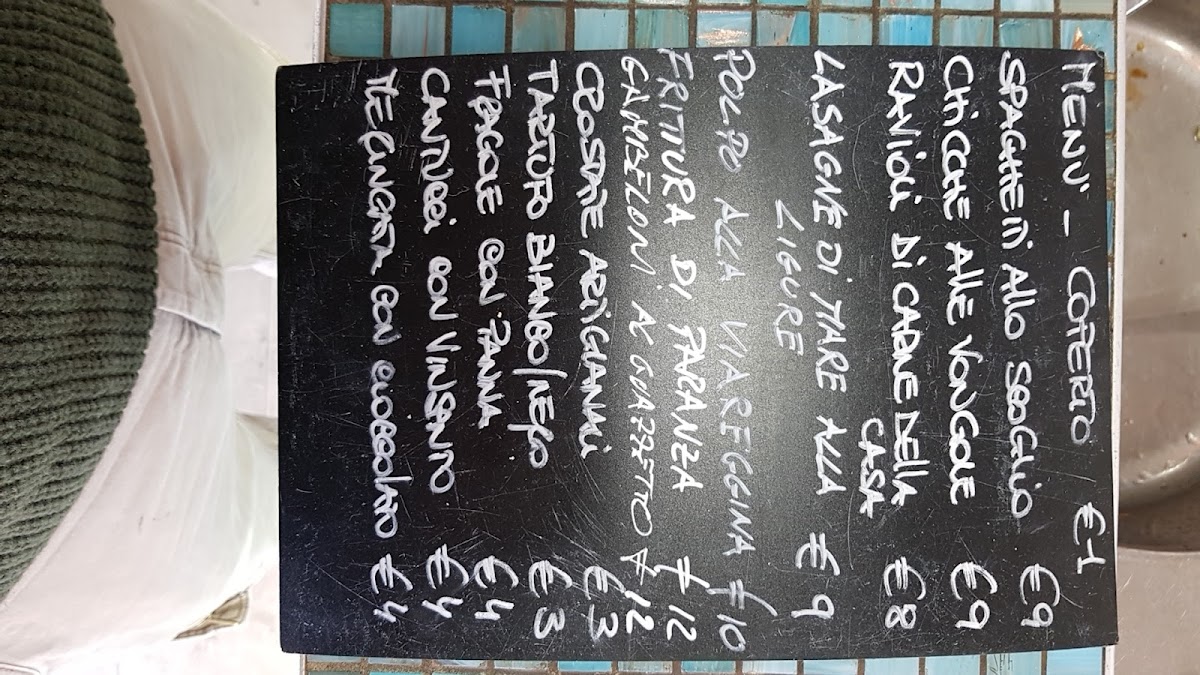 MENÙ - COPERTO €1
SPAGHETTI ALLO SCOGLIO €9
CHICCHE ALLE VONGOLE €9
RAVIOLI DI CARNE DELLA
CASA €8
LASAGNE DI MARE ALLA €9
LIGURE
POLPO ALLA VIAREGGINA €10
FRITTURA DI PARANZA €12
GAMBERONI AL GUAZZETTO €12
CROSTATE ARTIGIANALI €3
TARTUFO BIANCO/NERO €3
FRAGOLE CON PANNA €4
CANTUCCI CON VINSANTO €4
MERINGATA CON CIOCCOLATO €4